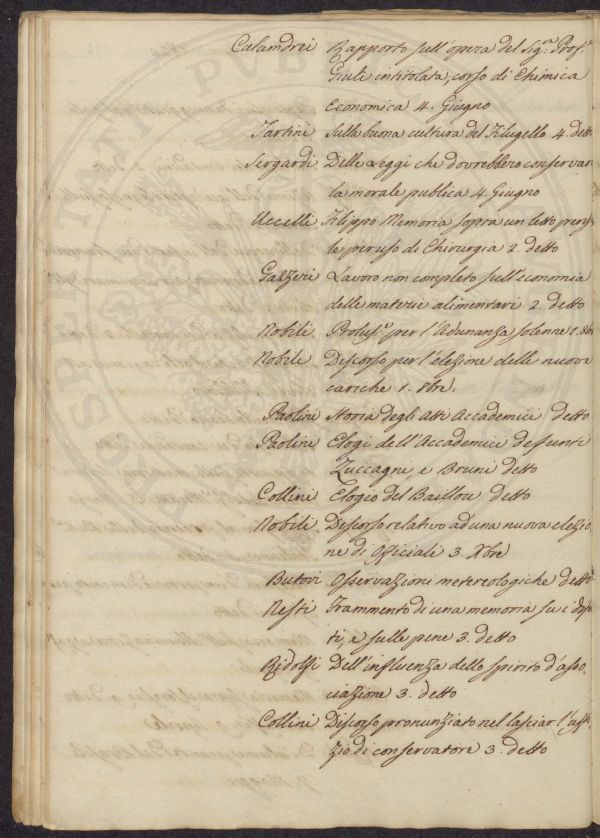 Calamdrei Rapporto sull'opera del Sig.re Prof.re
Giuli intitolata, corso di Chimica
Economica 4. Giugno
Tartini Sulla buona cultura del Filugello 4. detto
Sergardi Delle Leggi che dovrebbero conservar
la morale publica 4. Giugno
Uccelli Filippo Memoria sopra un letto pens
le per uso di Chirurgia 2 detto
Gazzeri Lavoro non completo sull'economia
delle materie alimentari 2 detto
Nobili per l'Adunanza solenne 1. 8bre
Nobili Discorso per l'elezione delle nuove
cariche 1. 8bre.
Paolini Storia degli Atti Accademici detto
Paolini Elogi dell'Accademici defunti
Zuccagni, e Bruni detto
Collini Elogio del Baillou detto
Nobili Discorso relativo ad una nuova elezio
ne di Officiale 3. Xbre
Butori Osservazioni metereologiche detto
Nesti Frammento di una memoria su i
ti, e sulle pene 3. detto
Ridolfi Dell'influenza dello spirito d'asso
ciazione 3. detto
Collini Discorso pronunziato nel lasciar
zio di conservatore 3. detto